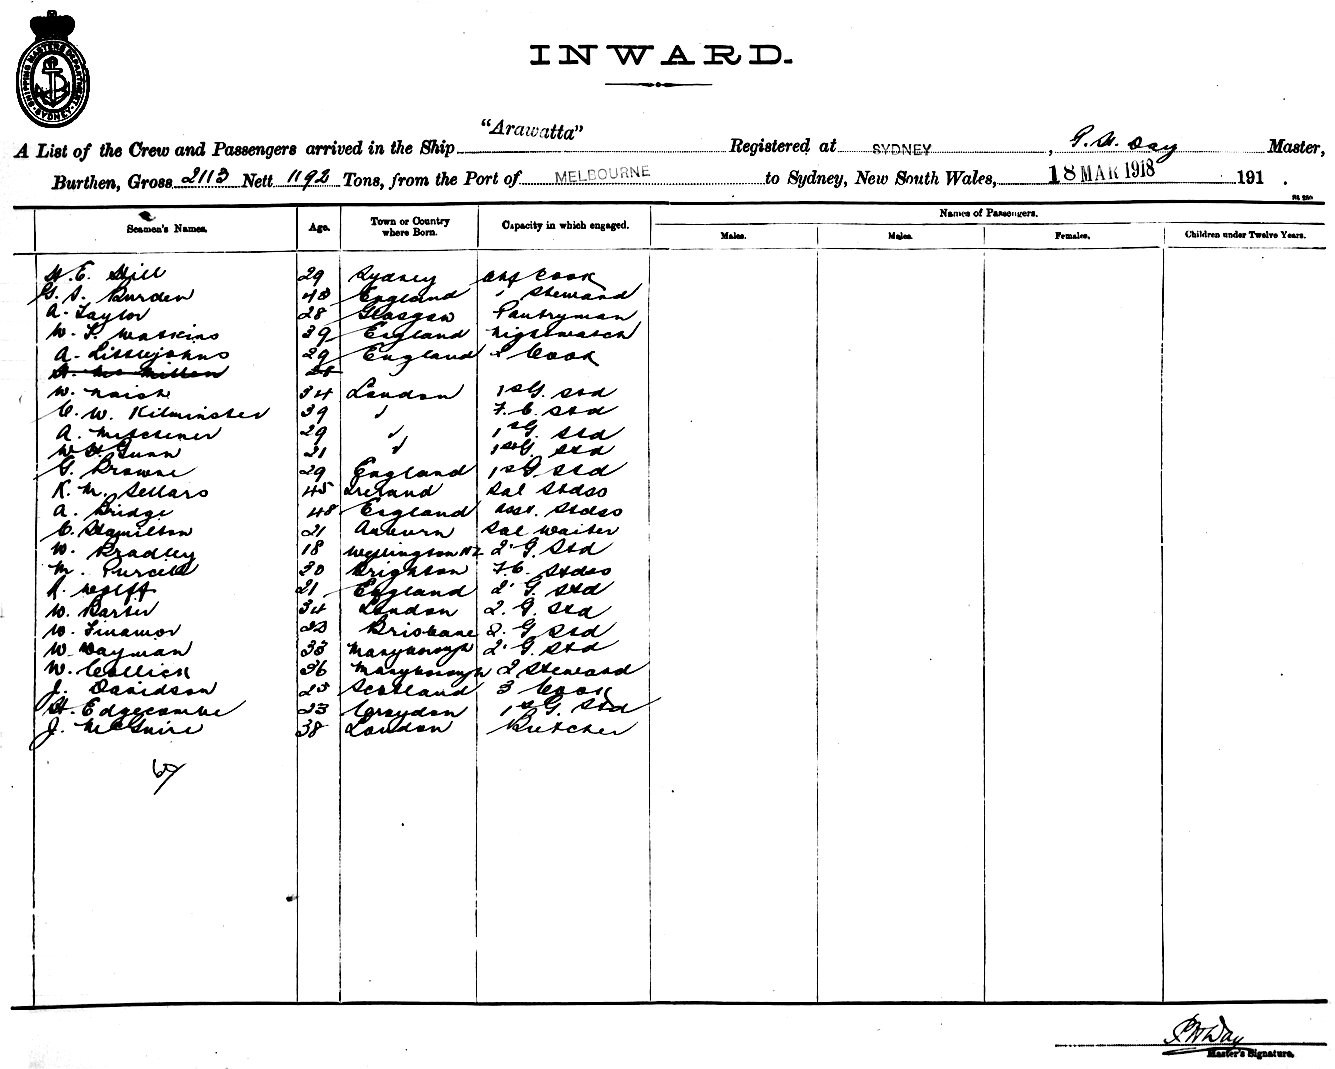 SHIPPING MASTERS DEPARTMENT SYDNEY
INWARD.
A List of the Crew and Passengers arrived in the Ship "Arawatta" Registered at SYDNEY, Day Master,
Burthen, Gross 2113 Nett 1192 Tons, from the Port of MELBOURNE to Sydney, New South Wales, 18 MAR 1918 191 .
Seamen's Names. Age. Town or Country where Born. Capacity in which engaged. Names of Passengers.
Males. Males. Females. Children under Twelve Years.
H. E. Hill 29 Sydney Chf Cook
G. S. Burden 48 England " Steward
A. Taylor 28 Glasgow Pantryman
W. T. Watkins 39 England Nightwatch
A. Littlejohns 29 England 2 Cook
H. McMillan 28
W. Naish 34 London 1st G. Std
C. W. Kilminster 39 " F. C. Std
A. Mitchener 29 " 1st G. Std
W H Gunn 21 " 1st G. Std
G. Browne 29 England 1st G. Std
K. M. Sellars 45 Ireland Sal Stdss
A. Bridge 48 England Asst. Stdss
C. Hamilton 21 Auburn Sal Waiter
W. Bradley 18 Wellington NZ 2' G. Std
M. Purcell 30 Brighton F. C. Stdss
R. 21 England 2' G. Std
W. Barter 34 London 2. G. Std
W. Finamor 23 Brisbane 2. G Std
W Wayman 33 Maryborough 2' G. Std
W. Collick 36 Maryborough 2 Steward
J. Davidson 25 Scotland 3 Cook
H. Edgecombe 23 Croydon 1st G. Std
J. McGuire 38 London Butcher
Day
Master's Signature.